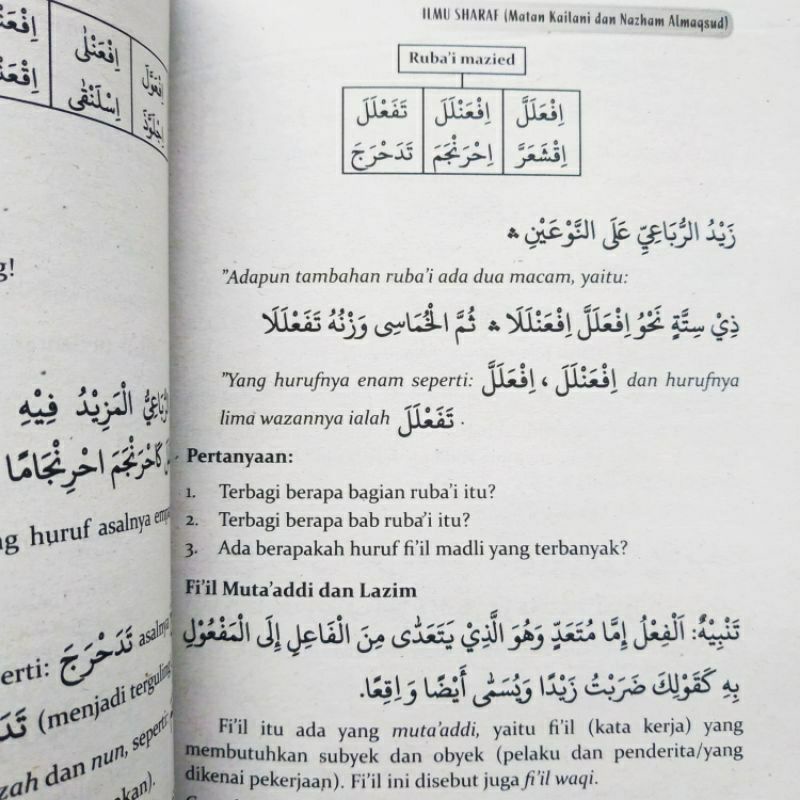 اِفْعَنْلٰى
اِفْعَوَّلَ
اِسْلَنْقٰى
اِجْلَوَّذَ
g!
الْمَزِيْدُ فِيْهِ
كَاحْرَنْجَمَ احْرِنْجَامًا
ng huruf asalnya
erti: تَدَحْرَجَ asalnya
(menjadi terguling
zah dan nun, seperti:
kan).
ILMU SHARAF (Matan Kailani dan Nazham Almaqsud)
Ruba'i mazied
اِفْعَلَلَّ اِفْعَنْلَلَ تَفَعْلَلَ
اِقْشَعَرَّ اِحْرَنْجَمَ تَدَحْرَجَ
زَيْدُ الرُّبَاعِيِّ عَلَى النَّوْعَيْنِ ۞
"Adapun tambahan ruba'i ada dua macam, yaitu:
ذِيْ سِتَّةٍ نَحْوُ اِفْعَلَلَّ اِفْعَنْلَلَا ۞ ثُمَّ الْخُمَاسِى وَزْنُهُ تَفَعْلَلَا
"Yang hurufnya enam seperti: اِفْعَنْلَلَ ، اِفْعَلَلَّ dan hurufnya
lima wazannya ialah تَفَعْلَلَ .
Pertanyaan:
1. Terbagi berapa bagian ruba'i itu?
2. Terbagi berapa bab ruba'i itu?
3. Ada berapakah huruf fi'il madli yang terbanyak?
Fi'il Muta'addi dan Lazim
تَنْبِيْهٌ: اَلْفِعْلُ إِمَّا مُتَعَدٍّ وَهُوَ الَّذِيْ يَتَعَدّٰى مِنَ الْفَاعِلِ إِلَى الْمَفْعُوْلِ
بِهِ كَقَوْلِكَ ضَرَبْتُ زَيْدًا وَيُسَمّٰى أَيْضًا وَاقِعًا.
Fi'il itu ada yang muta'addi, yaitu fi'il (kata kerja) yang
membutuhkan subyek dan obyek (pelaku dan penderita/yang
dikenai pekerjaan). Fi'il ini disebut juga fi'il waqi.